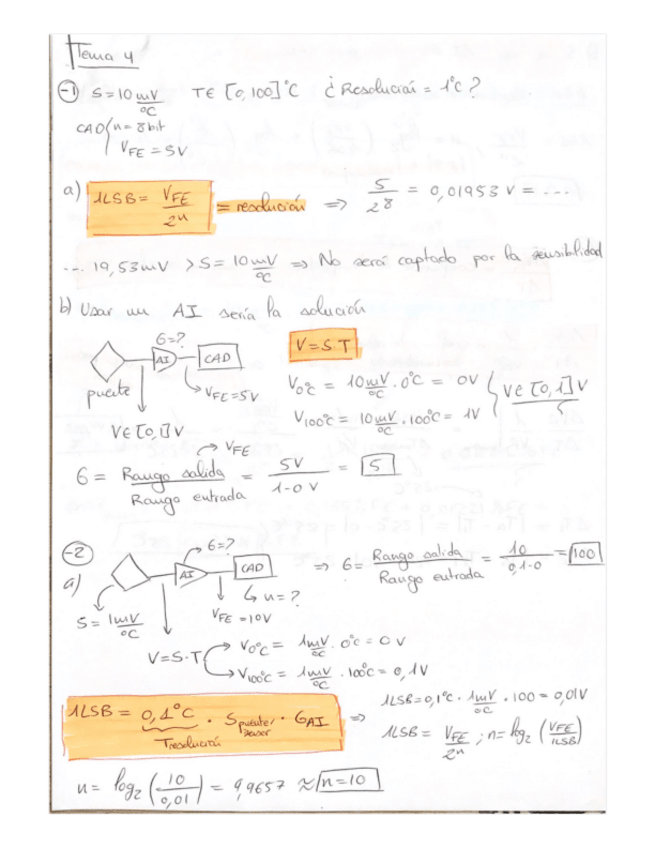 Tema 4
-1 S=10 mV/°C T∈ [0,100]°C ¿Resolución = 1°C?
CAD { n = 8 bit
V_FE = 5V
a) 1LSB = V_FE/2^n = resolución ⇒ 5/2^8 = 0,01953 V = ...
... 19,53mV > S = 10 mV/°C ⇒ No será captado por la sensibilidad
b) Usar un AI sería la solución
G=?
AI
CAD
V = S·T
puente
V_FE = 5V
V0°C = 10 mV/°C · 0°C = 0V
V∈ [0,1] V
V100°C = 10 mV/°C · 100°C = 1V
V∈ [0,1] V
V_FE
G = Rango salida / Rango entrada = 5V / 1-0 V = 5
-2
a)
G=?
AI
CAD
⇒ G = Rango salida / Rango entrada = 10 / 0,1-0 = 100
n = ?
S = 1 mV/°C
V_FE = 10V
V = S·T
V0°C = 1 mV/°C · 0°C = 0 V
V100°C = 1 mV/°C · 100°C = 0,1V
1LSB = 0,1°C · S puente/sensor · G_AI ⇒
T resolución
1LSB = 0,1°C · 1 mV/°C · 100 = 0,01V
1LSB = V_FE/2^n ; n = log2 (V_FE/1LSB)
n = log2 (10/0,01) = 9,9657 ≈ n = 10